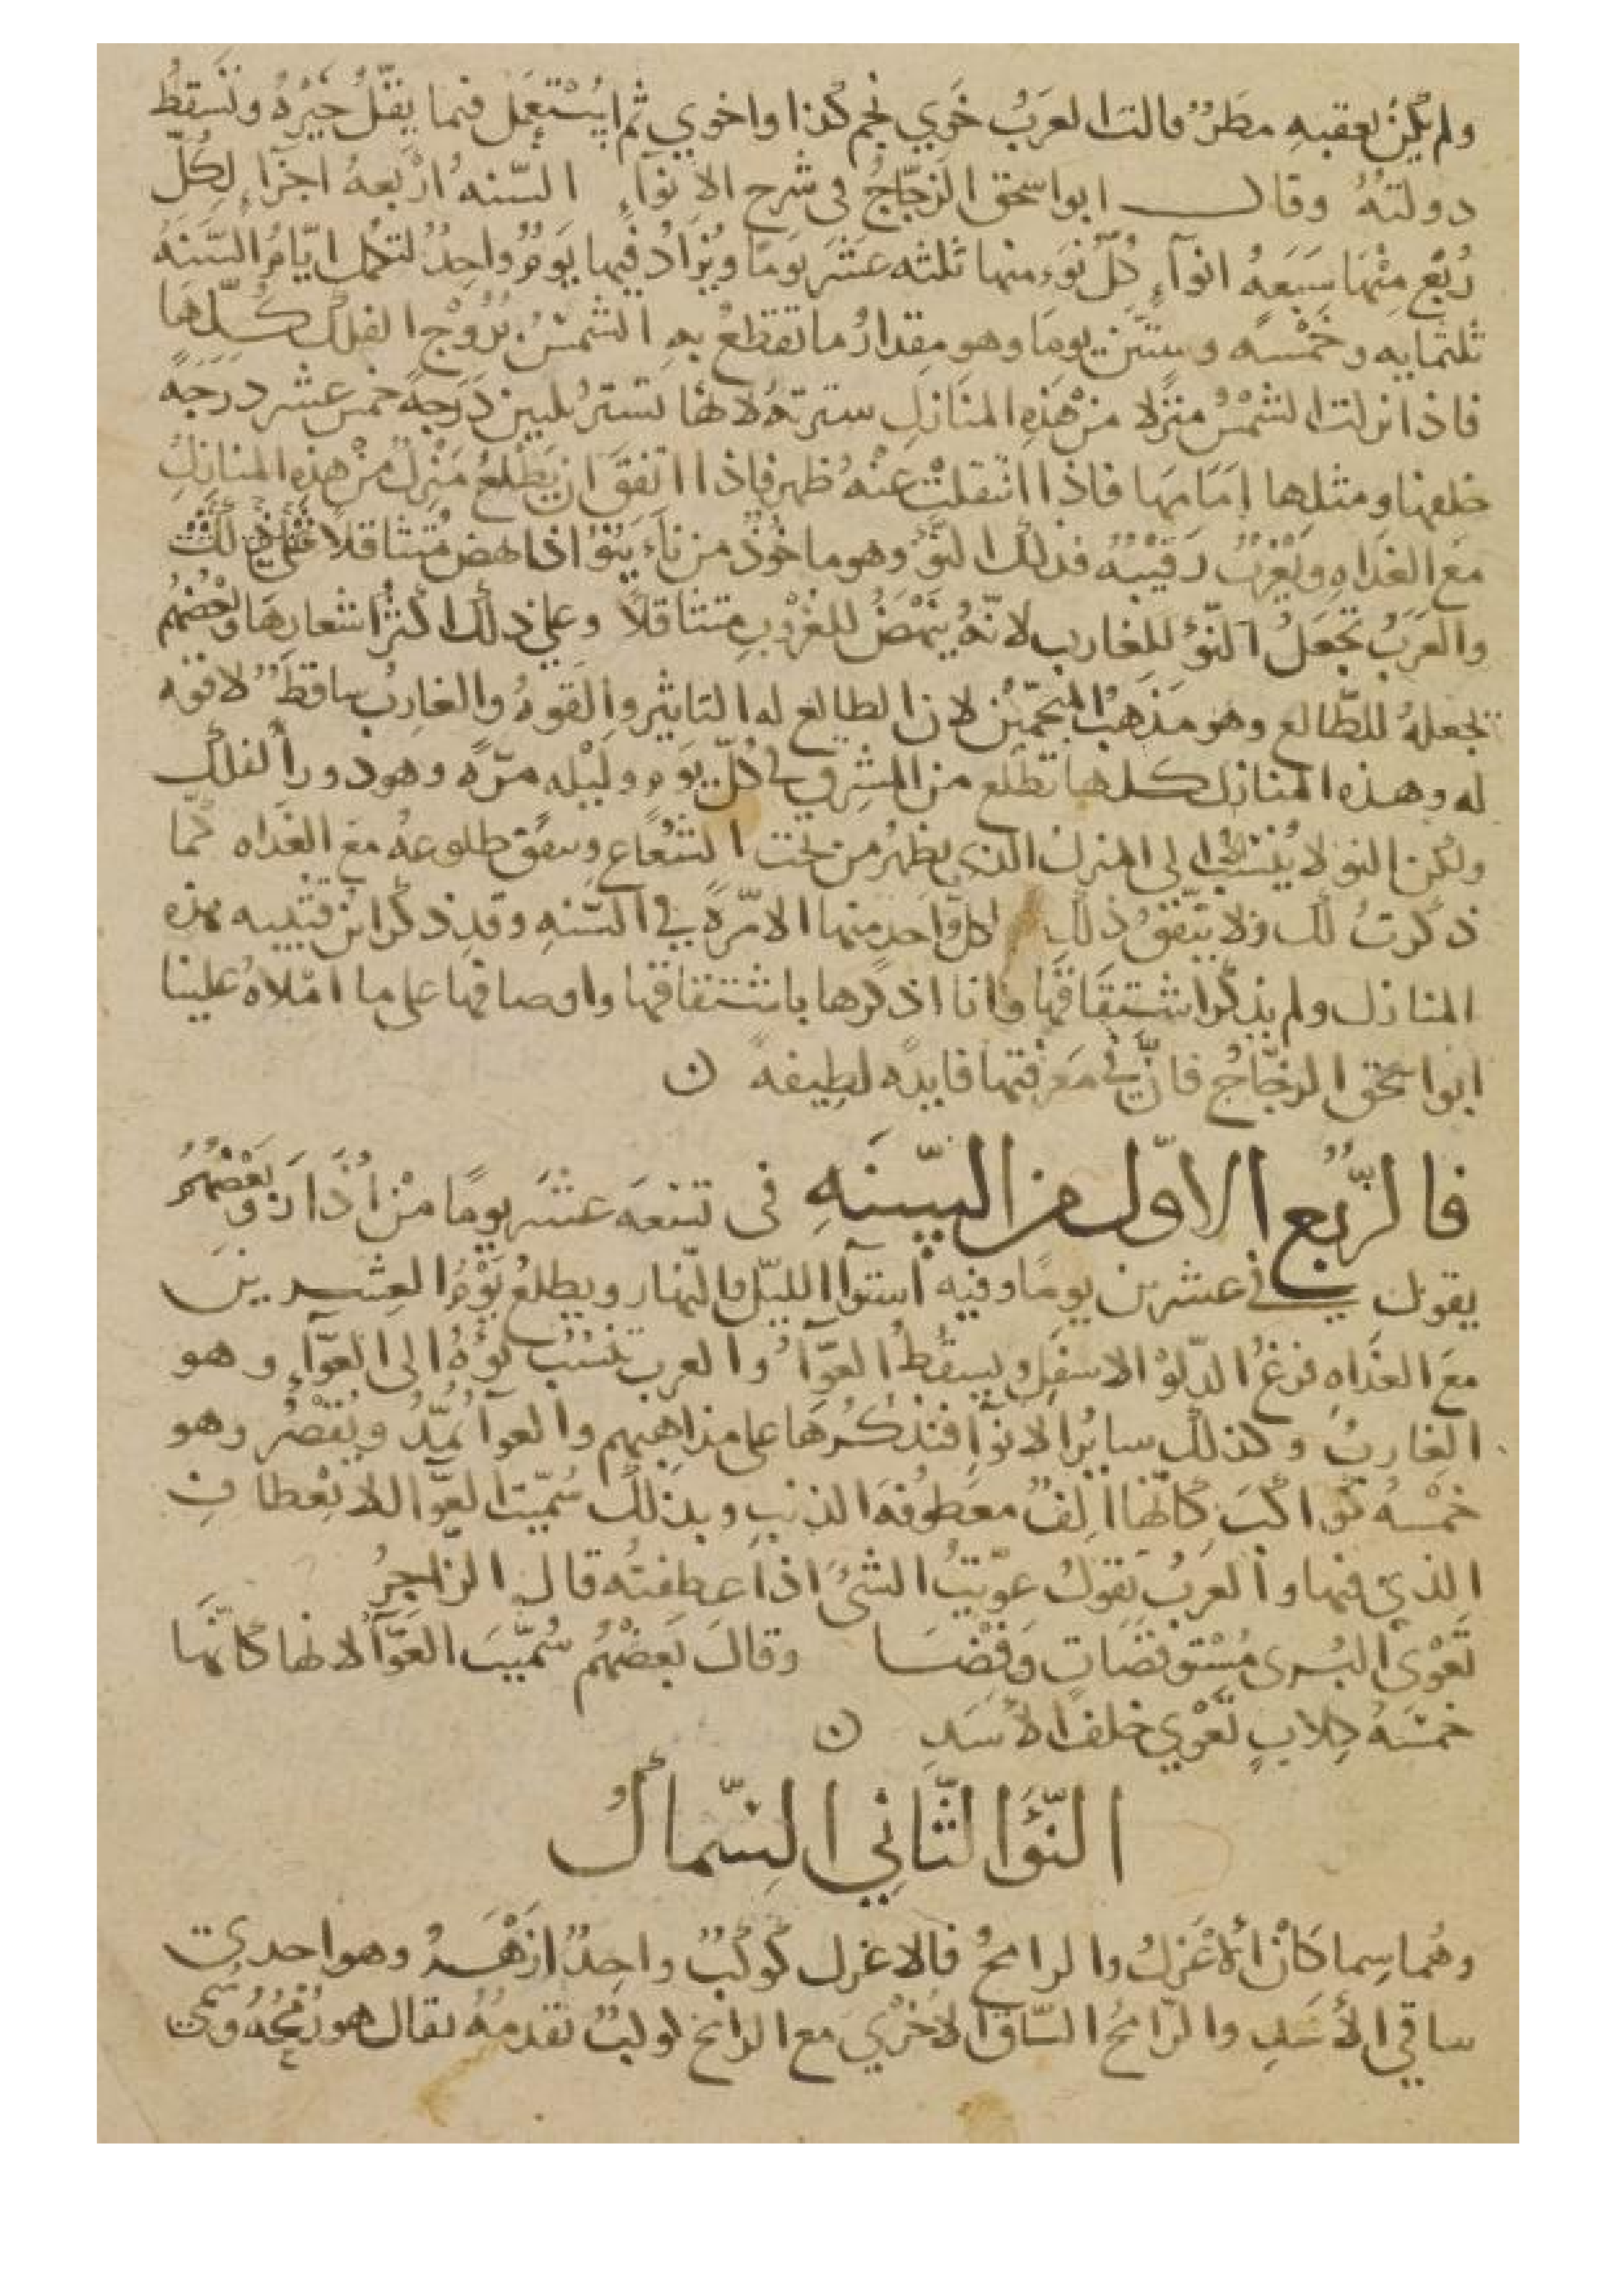 ولم يكن بعقبه مطر قالت العرب خوي نجم كذا واخوي ثم يستعمل فيما يقل خيره وتسقط
دولته وقال ابو اسحق الزجاج في شرح الانواء السنه اربعه اجزاء لكل
ربع منها سبعه انواء كل نوء منها ثلثه عشر يوما ويزاد فيها يوم واحد لتكمل ايام السنه
ثلثمايه وخمسه وستين يوما وهو مقدار ما تقطع به الشمس بروج الفلك كلها
فاذا نزلت الشمس منزلا من هذه المنازل سترته لانها تستر ثلثين درجة خمس عشر درجة
خلفها ومثلها امامها فاذا انتقلت عنه ظهر فاذا اتفق ان يطلع منزل من هذه المنازل
مع الغداه ويغرب رقيبه فذلك النو وهو ماخوذ من ناء ينوء اذا نهض متثاقلا
والعرب تجعل النؤ للغارب لانه ينهض للغروب متثاقلا وعلى ذلك اكثر اشعارها وبعضهم
يجعله للطالع وهو مذهب المنجمين لان الطالع له التاثير والقوه والغارب ساقط لا قوه
له وهذه المنازل كلها تطلع من المشرق في كل يوم وليله مرة وهو دور الفلك
ولكن النو لا ينسب الى المنزل الذي يظهر من تحت الشعاع ويتفق طلوعه مع الغداه كما
ذكرت لك ولا يتفق ذلك لكل واحد منها الا مرة في السنه وقد ذكر ابن قتيبه هذه
المنازل ولم يذكر اشتقاقها وانا اذكرها باشتقاقها واوصافها على ما املاه علينا
ابو اسحق الزجاج فان في معرفتها فايدة لطيفة ن
فالربع الاول من السنه في تسعه عشر يوما من اذار وبعضهم
يقول في عشرين يوما وفيه استوا الليل والنهار ويطلع يوم العشرين
مع الغداه فرغ الدلو الاسفل ويسقط العواء والعرب تنسب نؤه الى العواء وهو
الغارب وكذلك ساير الانواء فنذكرها على مذاهبهم والعوا يمد ويقصر وهو
خمسه كواكب كانها الف معطوفة الذنب وبذلك سميت العوا للانعطاف
الذي فيها والعرب تقول عويت الشئ اذا عطفته قال الراجز
تعوي البرى مستوفضات وفضا وقال بعضهم سميت العوا لانها كانها
خمسه كلاب تعوي خلف الاسد ن
النؤ الثاني السماك
وهما سماكان الاعزل والرامح فالاعزل كوكب واحد ازهر وهو احدى
ساقي الاسد والرامح الساق الاخرى مع الرامح كوكب تقدمه يقال هو رمحه وسمي